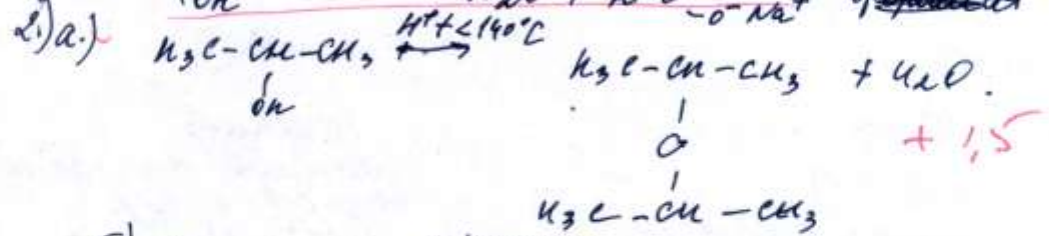 2.)a.) H₃C-CH-CH₃ H⁺ t<140°C H₃C-CH-CH₃ + H₂O.
OH
O
+ 1,5
H₃C-CH-CH₃
-O⁻Na⁺